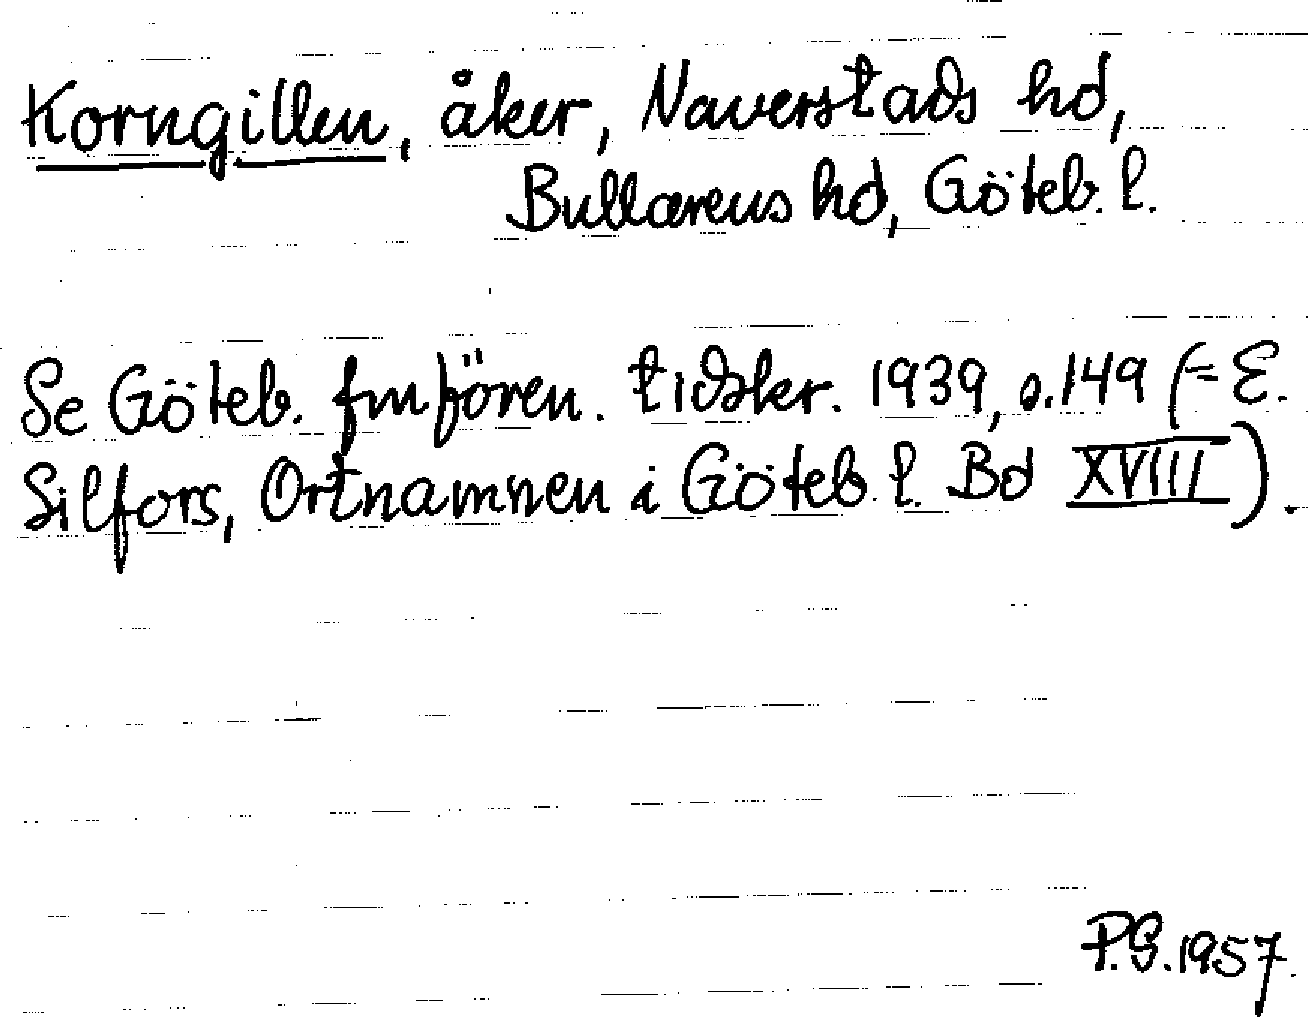 Korngillen, åker, Naverstads hd,
Bullarens hd, Göteb. l.
Se Göteb. fmfören. tidskr. 1939, s. 149 (= E.
Silfors, Ortnamnen i Göteb. l. Bd XVIII).
P.S. 1957.